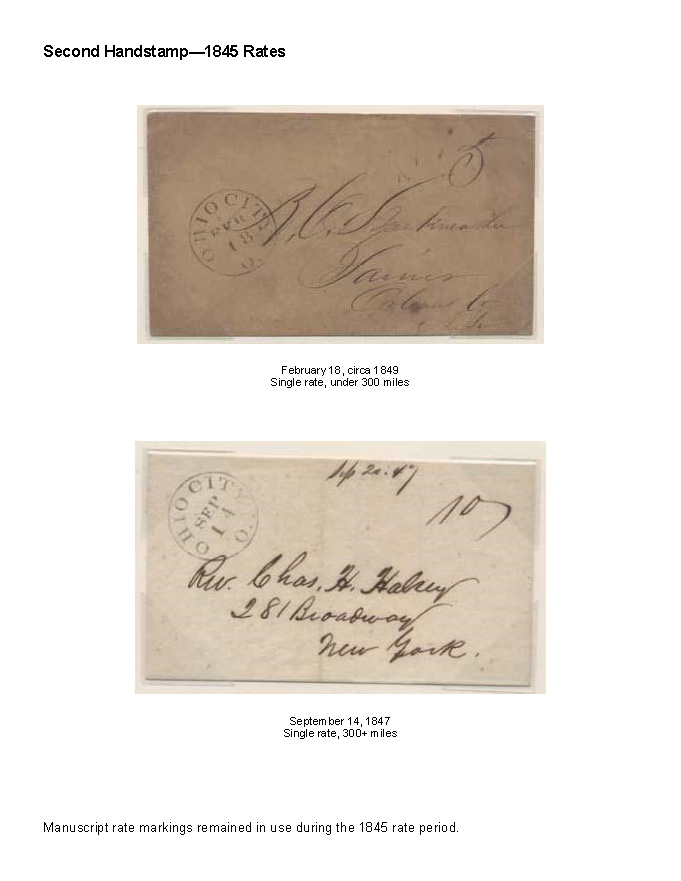 Second Handstamp—1845 Rates
5
OHIO CITY O.
FEB
18
February 18, circa 1849
Single rate, under 300 miles
Sep 20. 47
OHIO CITY O.
SEP
14
10
Rev. Chas. H. Halsey
281 Broadway
New York.
September 14, 1847
Single rate, 300+ miles
Manuscript rate markings remained in use during the 1845 rate period.